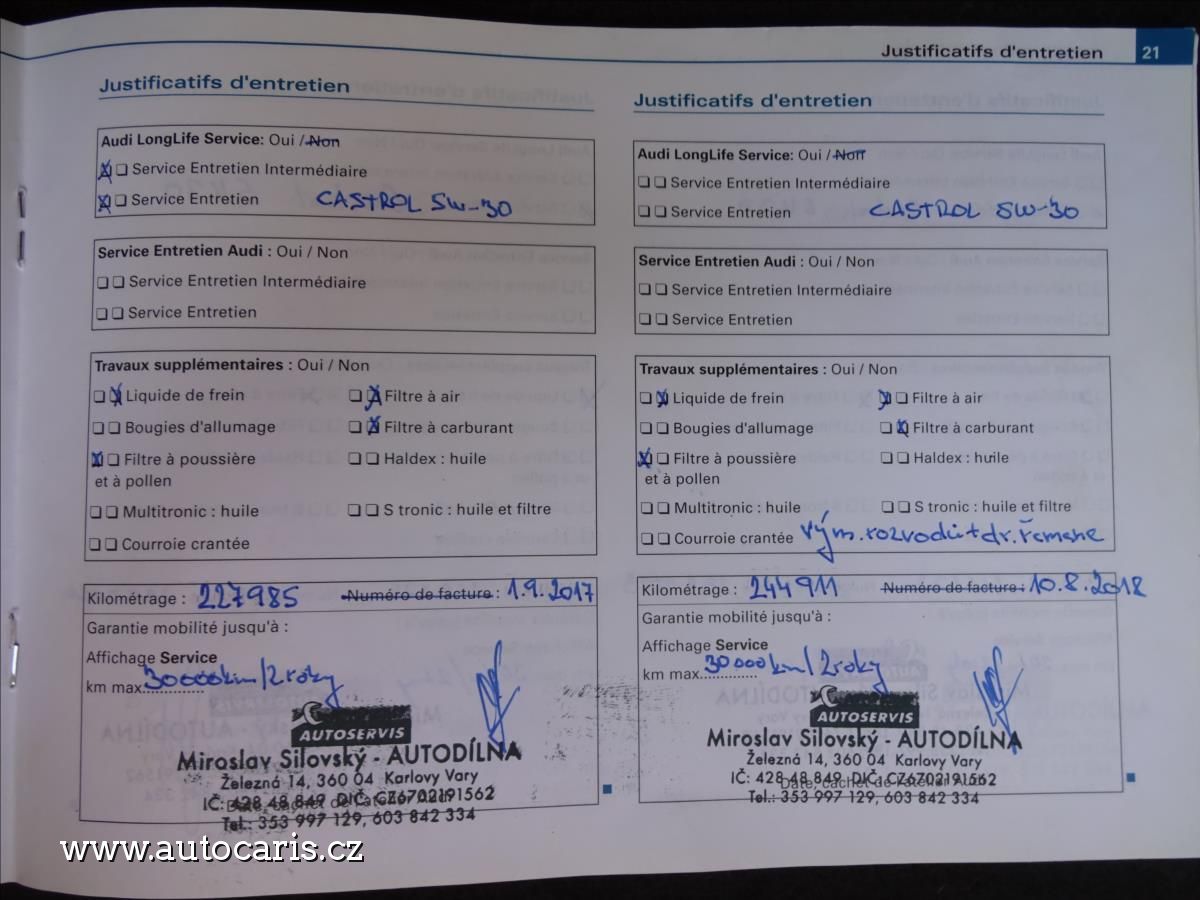 Justificatifs d'entretien 21
Justificatifs d'entretien
Audi LongLife Service: Oui / Non
Service Entretien Intermédiaire
Service Entretien CASTROL 5W-30
Service Entretien Audi : Oui / Non
Service Entretien Intermédiaire
Service Entretien
Travaux supplémentaires : Oui / Non
Liquide de frein Filtre à air
Bougies d'allumage Filtre à carburant
Filtre à poussière Haldex : huile
et à pollen
Multitronic : huile S tronic : huile et filtre
Courroie crantée
Kilométrage : 227985 Numéro de facture : 1.9.2017
Garantie mobilité jusqu'à :
Affichage Service
km max. 30000km/2roky
AUTOSERVIS
Miroslav Silovský - AUTODÍLNA
Železná 14, 360 04 Karlovy Vary
IČ: 428 48 849 DIČ: CZ6702191562
Date, cachet de l'atelier Audi
Tel.: 353 997 129, 603 842 334
Justificatifs d'entretien
Audi LongLife Service: Oui / Non
Service Entretien Intermédiaire
Service Entretien CASTROL 5W-30
Service Entretien Audi : Oui / Non
Service Entretien Intermédiaire
Service Entretien
Travaux supplémentaires : Oui / Non
Liquide de frein Filtre à air
Bougies d'allumage Filtre à carburant
Filtre à poussière Haldex : huile
et à pollen
Multitronic : huile S tronic : huile et filtre
Courroie crantée vým.rozvodů+dr.řemene
Kilométrage : 244911 Numéro de facture : 10.8.2018
Garantie mobilité jusqu'à :
Affichage Service
km max. 30000km/2roky
AUTOSERVIS
Miroslav Silovský - AUTODÍLNA
Železná 14, 360 04 Karlovy Vary
IČ: 428 48 849 DIČ: CZ6702191562
Date, cachet de l'atelier Audi
Tel.: 353 997 129, 603 842 334
www.autocaris.cz